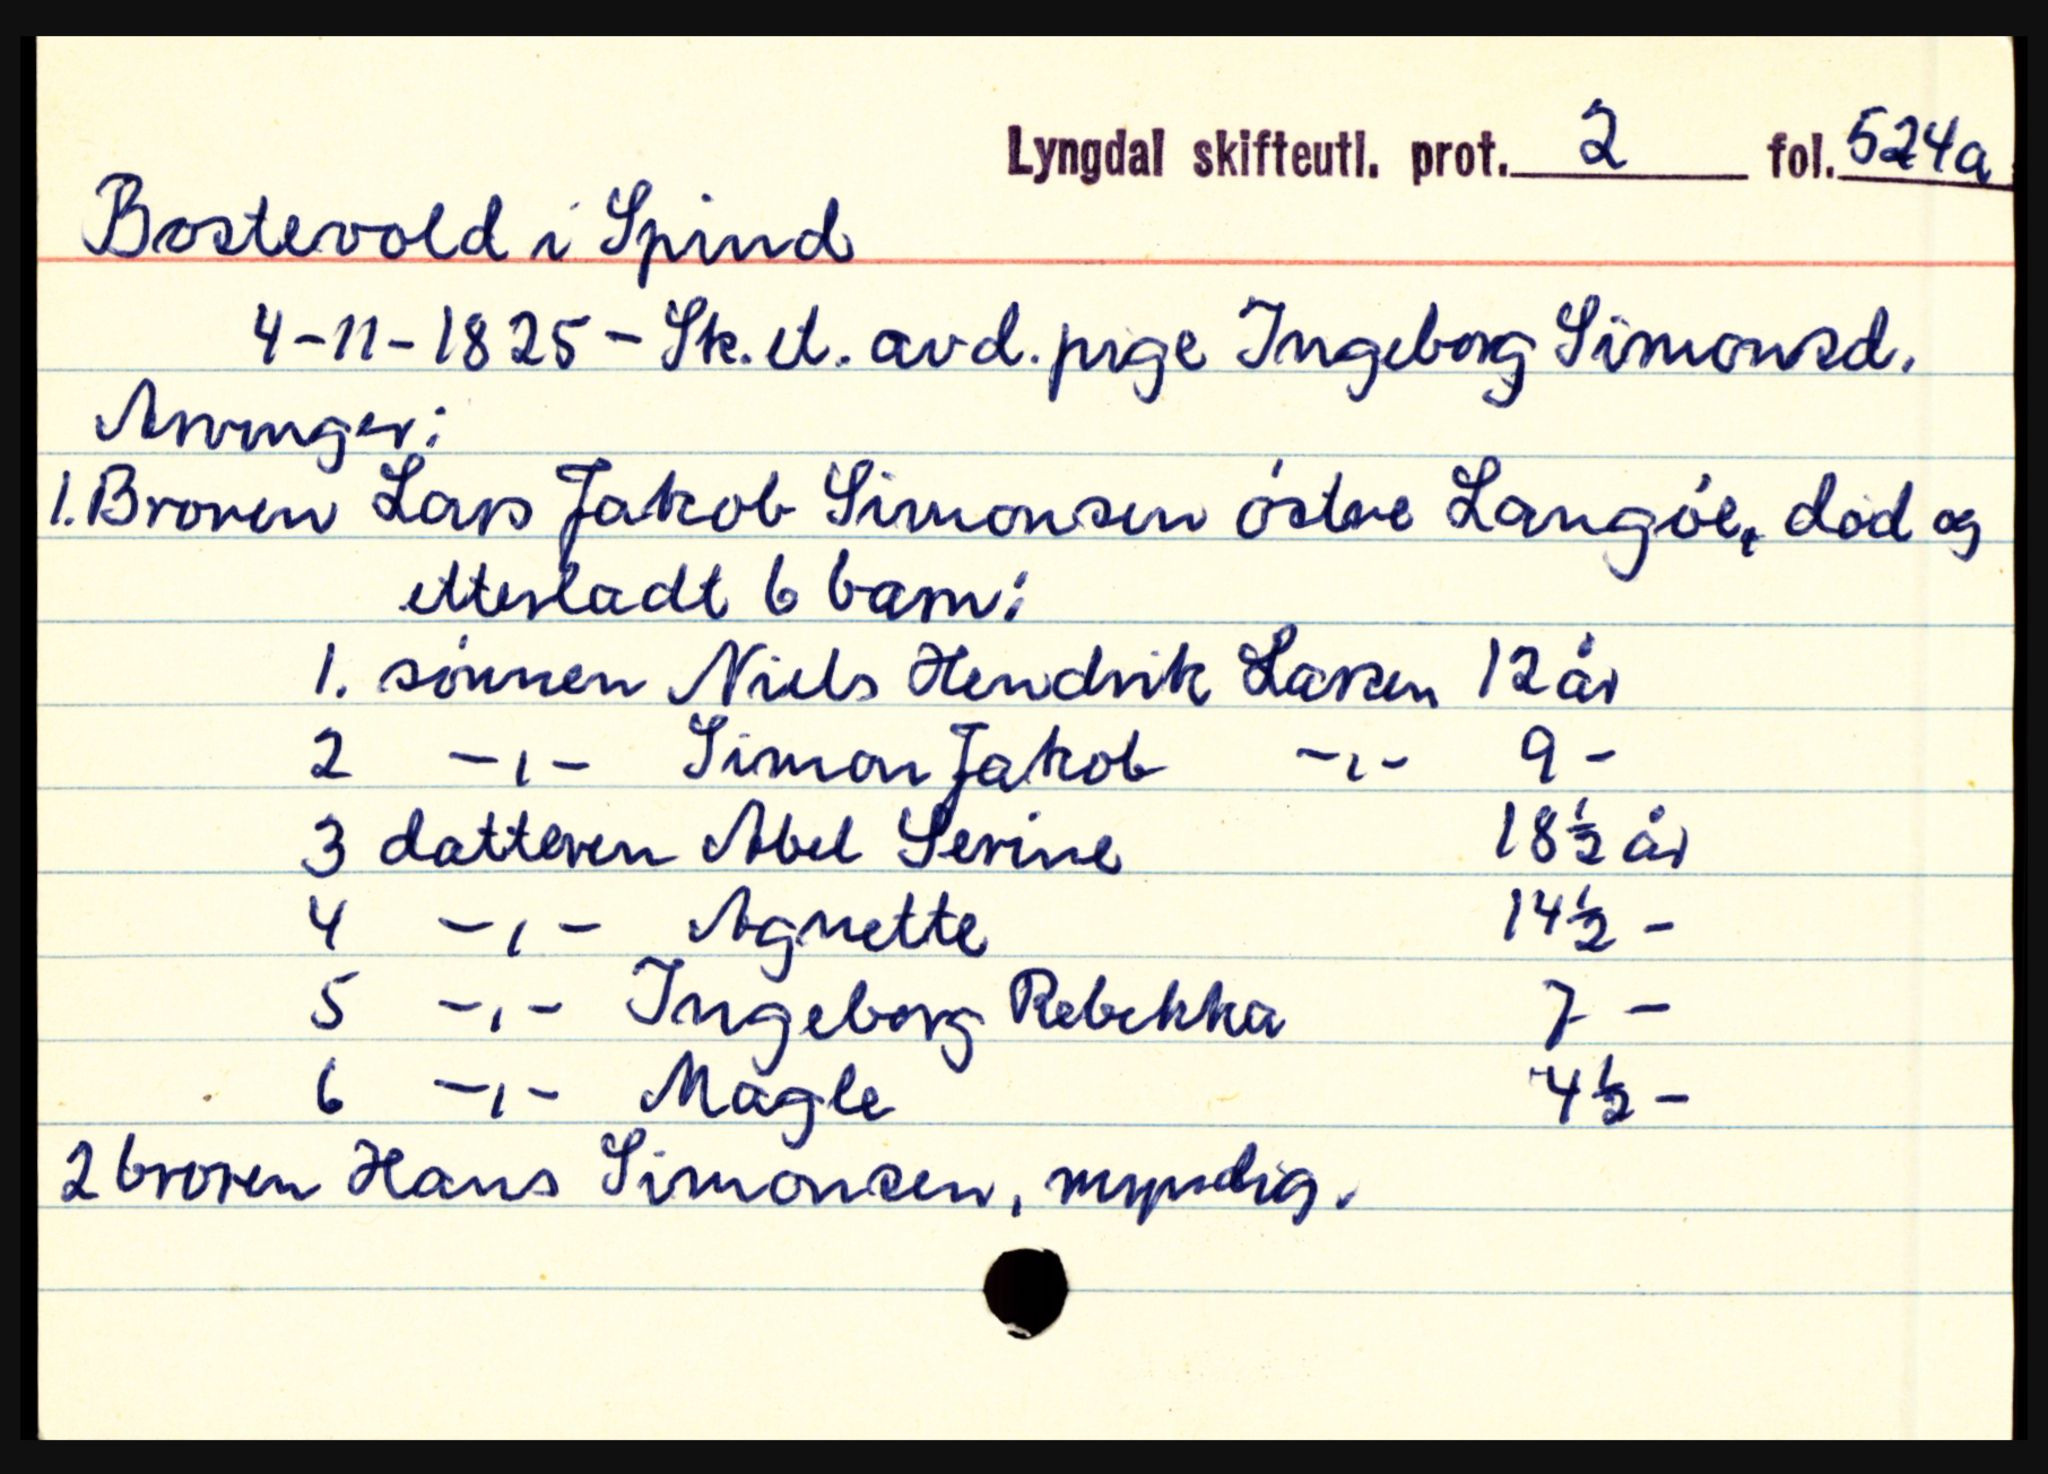 Lyngdal skifteutl. prot. 2 fol. 524a
Bostevold i Spind
4-11-1825 - Sk. et. avd. pige Ingeborg Simonsd.
Arvinger:
1. Broren Lars Jakob Simonsen østre Langøe, død og
etterladt 6 barn:
1. sønnen Niels Hendrik Larsen 12 år
2 -,- Simon Jakob -,- 9 -
3 datteren Abel Serine 18½ år
4 -,- Agnette 14½ -
5 -,- Ingeborg Rebekka 7 -
6 -,- Magle 4½ -
2 broren Hans Simonsen, myndig.